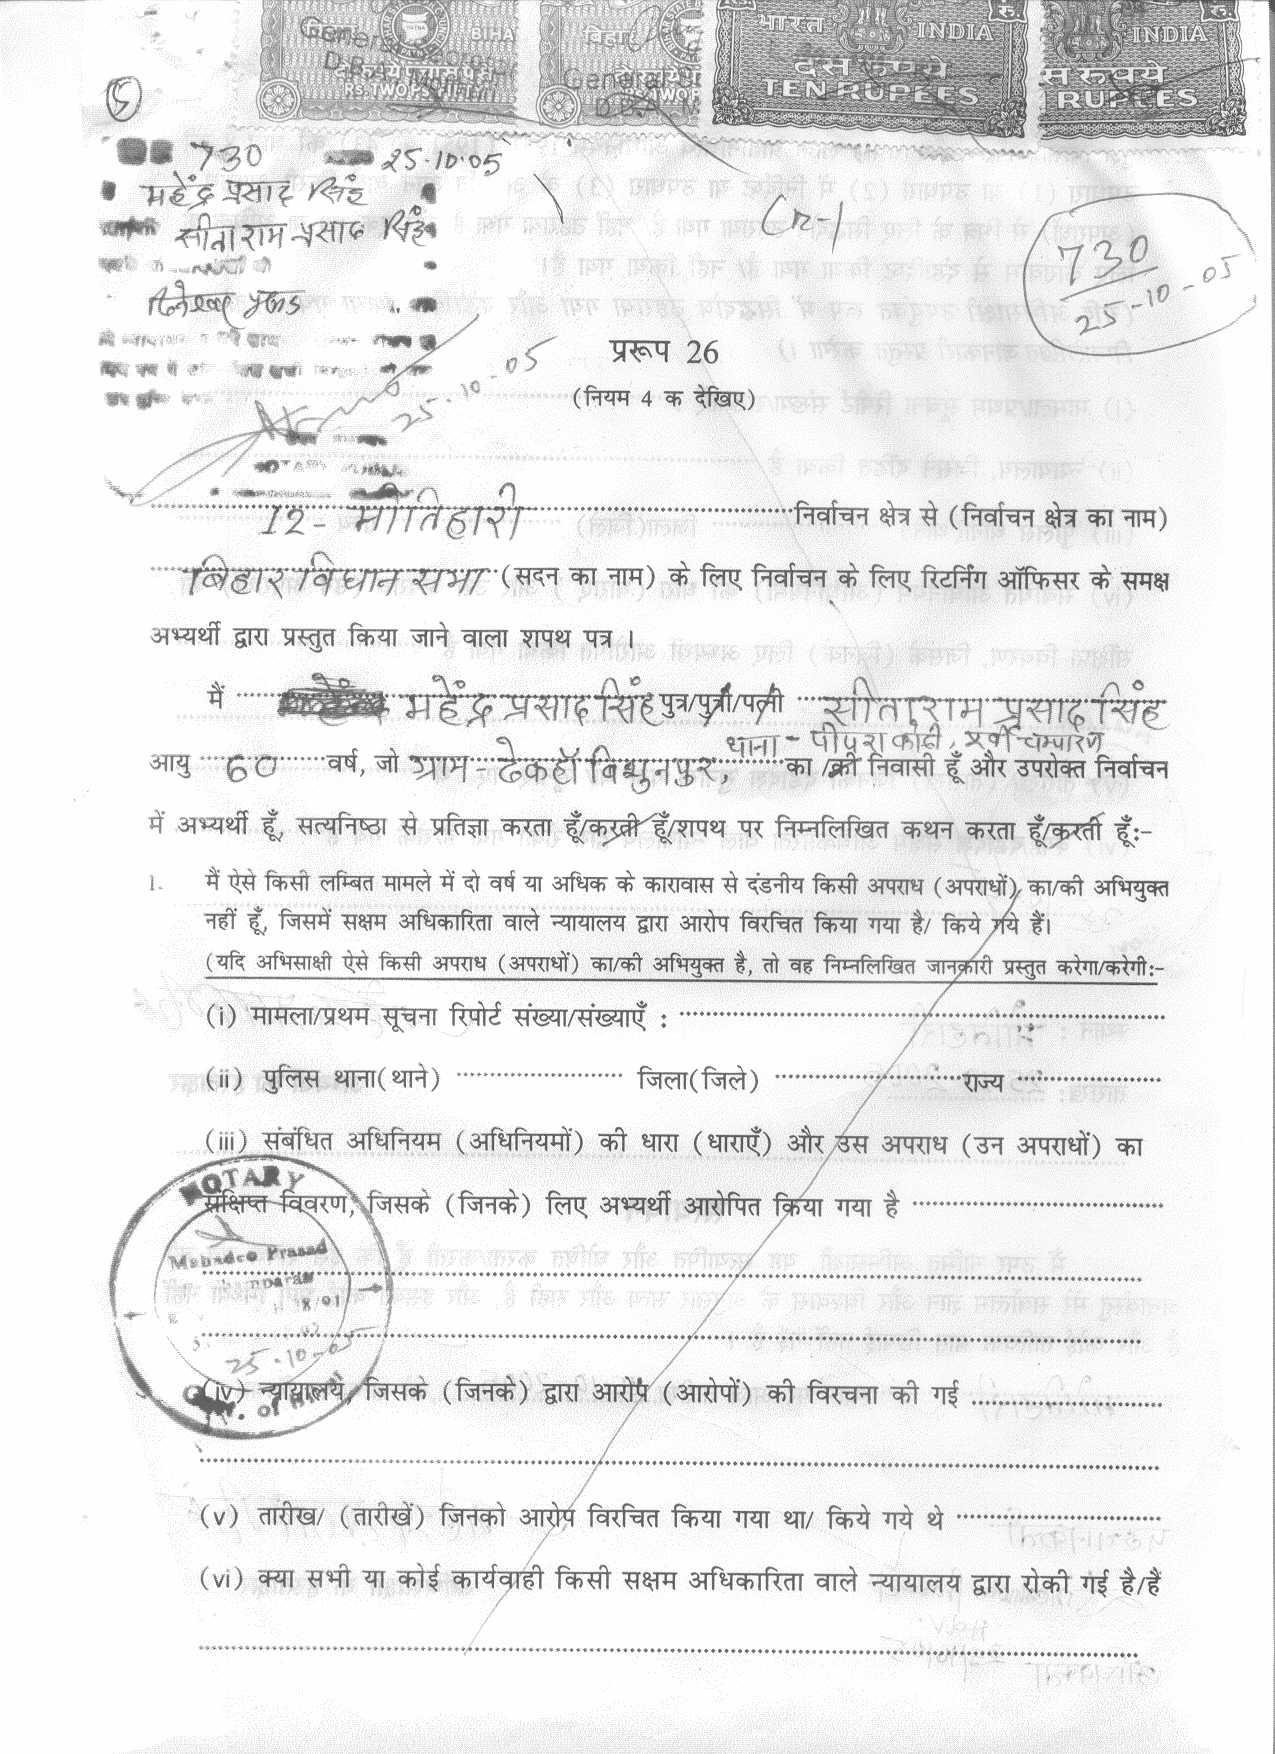 BIHA
बिहार
भारत
INDIA
रु.
INDIA
रु.
General
D.B.A.
RS. TWO
General
RS. TWO
D.B.A.
दस रुपये
TEN RUPEES
रुपये
RUPEES
5
730 25-10-05
महेंद्र प्रसाद सिंह
सीताराम प्रसाद सिंह
730
25-10-05
25-10-05
प्ररूप 26
(नियम 4 क देखिए)
12- मोतिहारी निर्वाचन क्षेत्र से (निर्वाचन क्षेत्र का नाम)
बिहार विधान सभा (सदन का नाम) के लिए निर्वाचन के लिए रिटर्निंग ऑफिसर के समक्ष
अभ्यर्थी द्वारा प्रस्तुत किया जाने वाला शपथ पत्र ।
मैं महेंद्र प्रसाद सिंह पुत्र/पुत्री/पत्नी सीताराम प्रसाद सिंह
थाना - पीपराकोठी, पूर्वी चम्पारण
आयु 60 वर्ष, जो ग्राम - ढेकहाँ विशुनपुर, का /की निवासी हूँ और उपरोक्त निर्वाचन
में अभ्यर्थी हूँ, सत्यनिष्ठा से प्रतिज्ञा करता हूँ/करती हूँ/शपथ पर निम्नलिखित कथन करता हूँ/करती हूँ:-
1. मैं ऐसे किसी लम्बित मामले में दो वर्ष या अधिक के कारावास से दंडनीय किसी अपराध (अपराधों) का/की अभियुक्त
नहीं हूँ, जिसमें सक्षम अधिकारिता वाले न्यायालय द्वारा आरोप विरचित किया गया है/ किये गये हैं।
(यदि अभिसाक्षी ऐसे किसी अपराध (अपराधों) का/की अभियुक्त है, तो वह निम्नलिखित जानकारी प्रस्तुत करेगा/करेगी:-
(i) मामला/प्रथम सूचना रिपोर्ट संख्या/संख्याएँ :
(ii) पुलिस थाना(थाने) जिला(जिले) राज्य
(iii) संबंधित अधिनियम (अधिनियमों) की धारा (धाराएँ) और उस अपराध (उन अपराधों) का
संक्षिप्त विवरण, जिसके (जिनके) लिए अभ्यर्थी आरोपित किया गया है
NOTARY
Mahadeo Prasad
25-10-05
(iv) न्यायालय, जिसके (जिनके) द्वारा आरोप (आरोपों) की विरचना की गई
(v) तारीख/ (तारीखें) जिनको आरोप विरचित किया गया था/ किये गये थे
(vi) क्या सभी या कोई कार्यवाही किसी सक्षम अधिकारिता वाले न्यायालय द्वारा रोकी गई है/हैं